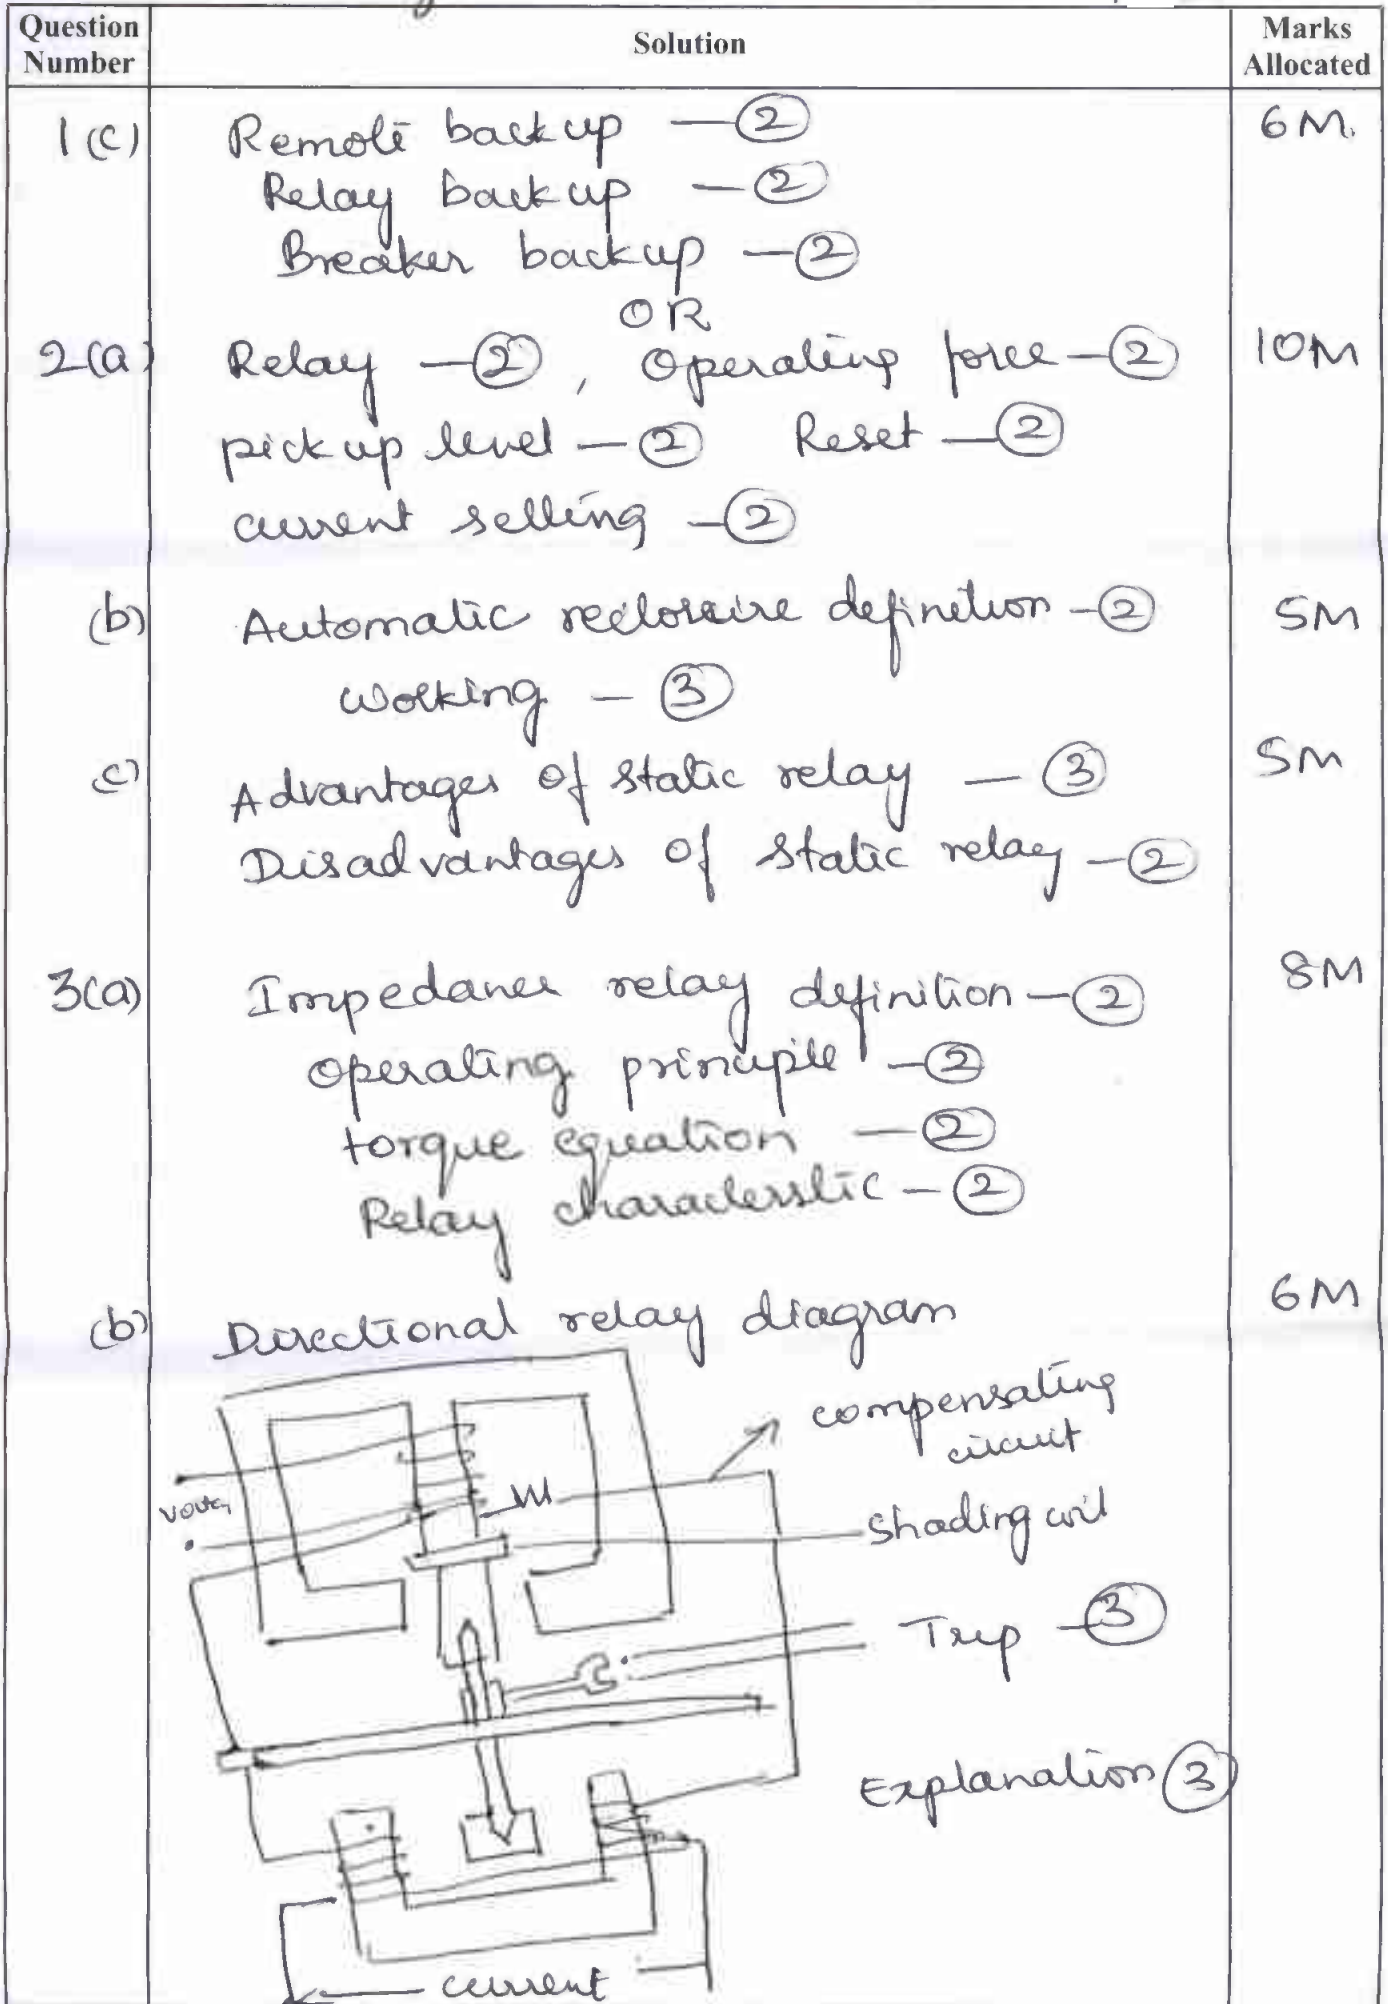 Question Number | Solution | Marks Allocated
1(c) Remote backup — 2 6M.
Relay backup — 2
Breaker backup — 2
OR
2(a) Relay — 2, Operating force — 2 10M
pick up level — 2 Reset — 2
current setting — 2
(b) Automatic reclosure definition — 2 5M
Working — 3
c) Advantages of static relay — 3 5M
Disadvantages of static relay — 2
3(a) Impedance relay definition — 2 8M
Operating principle — 2
torque equation — 2
Relay characteristic — 2
(b) Directional relay diagram 6M
compensating
circuit
Shading coil
Trip — 3
Explanation 3
current